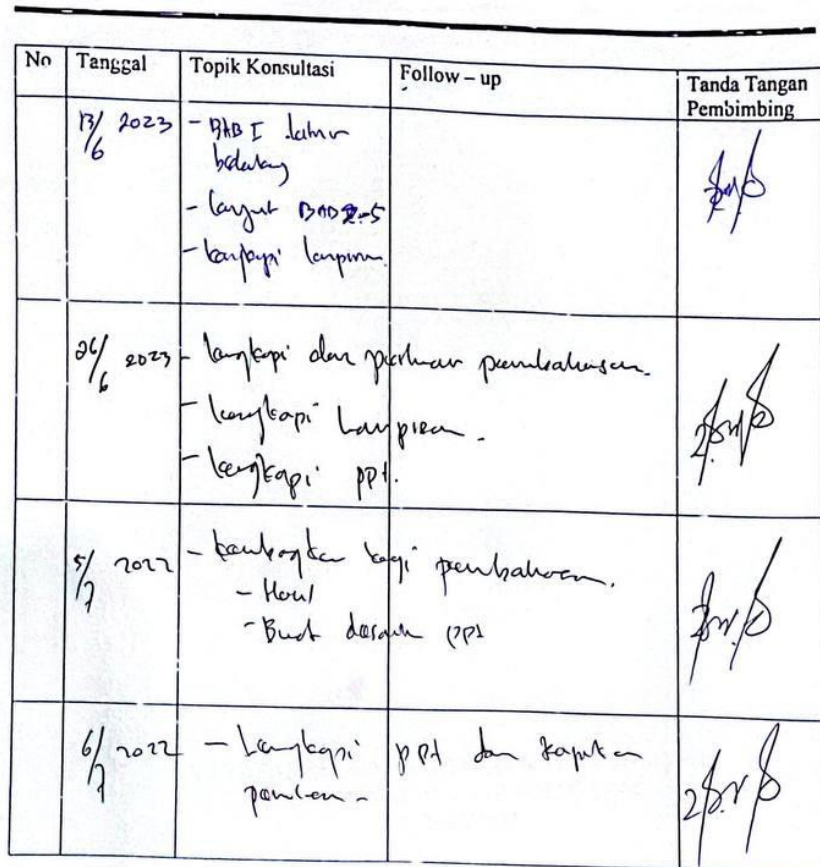 No Tanggal Topik Konsultasi Follow – up Tanda Tangan Pembimbing
13/6 2023 - BAB I latar
belakang
- lanjut BAB 2-5
- lengkapi lampiran.
26/6 2023 - lengkapi dan perluas pembahasan.
- lengkapi lampiran.
- lengkapi ppt.
5/7 2022 - kembangkan lagi pembahasan.
- Hasil
- Buat ppt
6/7 2022 - Lengkapi ppt dan